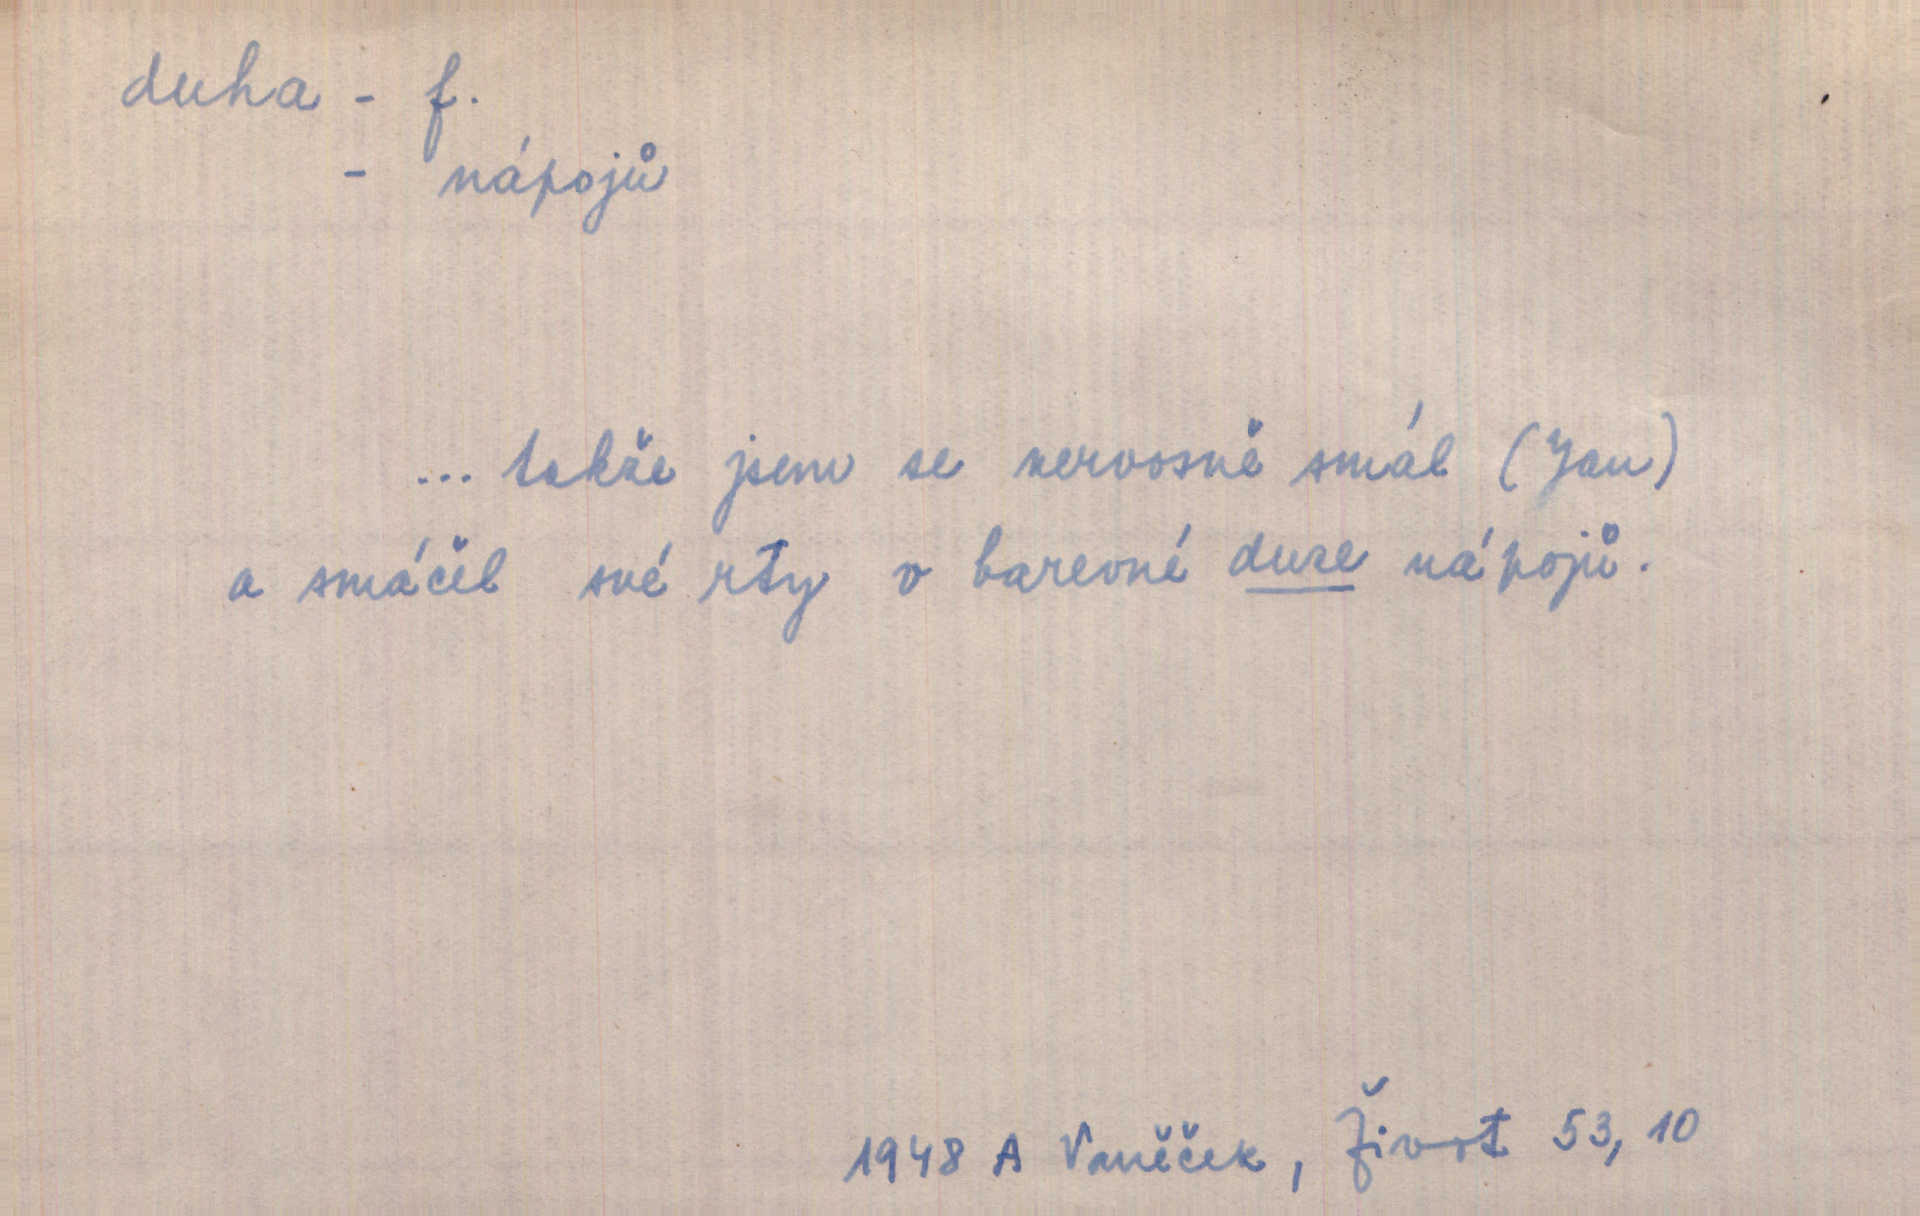 duha - f.
- nápojů
... takže jsem se nervosně smál (Jan)
a smáčel své rty v barevné duze nápojů.
1948 A Vaněček, Život 53, 10